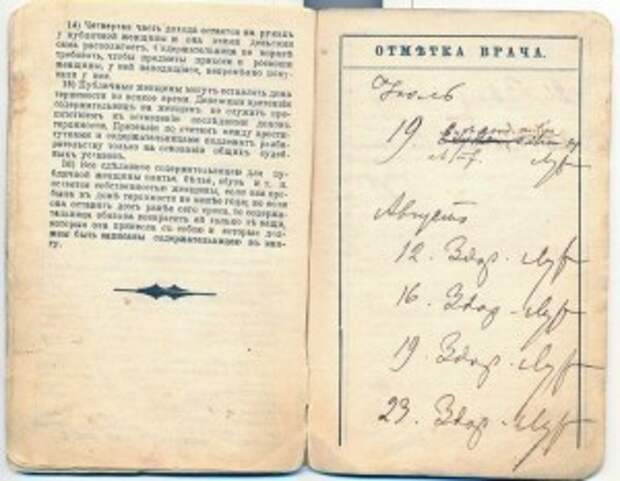 14) Четвертая часть дохода остается на руках
у публичной женщины и она этими деньгами
сама располагает. Содержательница не вправе
требовать, чтобы предметы прихоти и роскоши
женщины, у ней находящіяся, непремѣнно поку-
пали у нея.
15) Публичныя женщины могутъ оставлять домъ
терпимости во всякое время. Денежныя претензіи
содержательницъ на женщинъ не служатъ пре-
пятствіемъ къ оставленію послѣдними домовъ
терпимости. Претензіи по счетамъ между прости-
тутками и содержательницами подлежатъ разби-
рательству только на основаніи общихъ судеб-
ныхъ уставовъ.
16) Все сдѣланное содержательницею для пу-
бличной женщины платье, бѣлье, обувь и т. п.
остается собственностью женщины, если она про-
была въ домѣ терпимости не менѣе года; но если
она оставитъ домъ ранѣе сего срока, то содержа-
тельница обязана возвратить ей только тѣ вещи,
которыя она принесла съ собою и которыя дол-
жны быть записаны содержательницею въ кни-
гу.
ОТМѢТКА ВРАЧА.
Іюль
19
Августъ
12. Здор -
16. Здор -
19. Здор -
23. Здор -